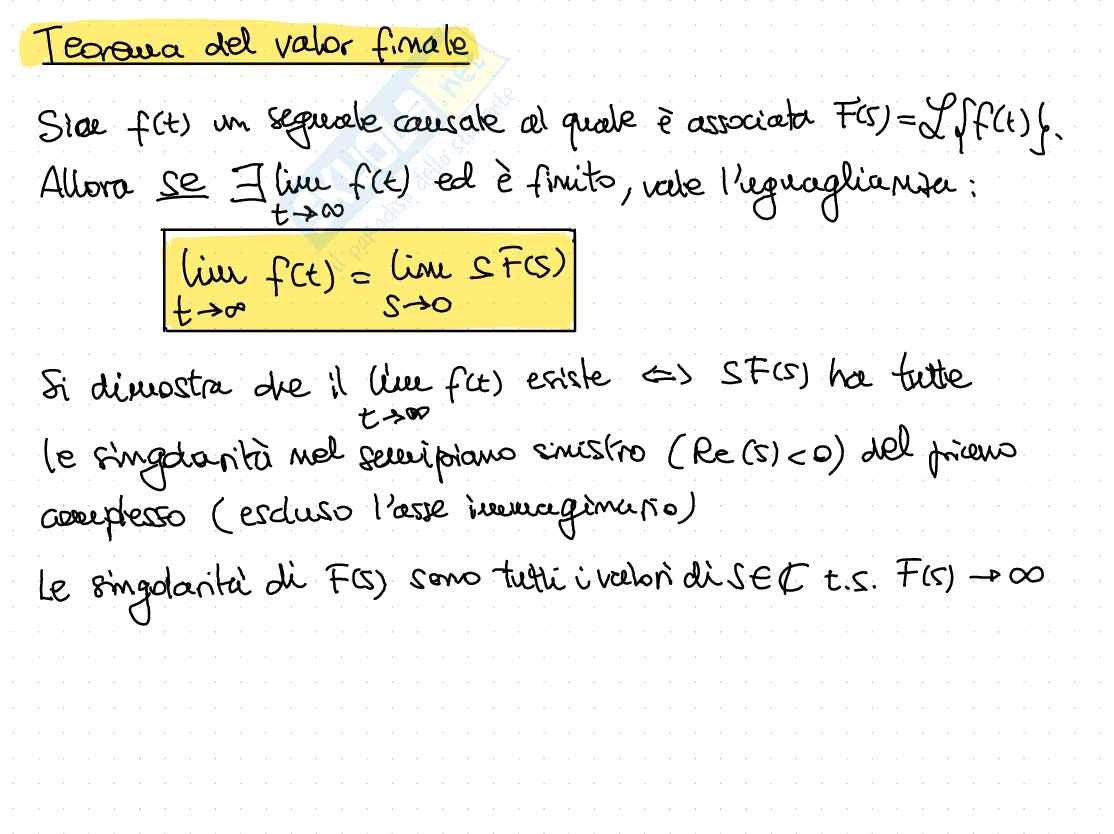 Teorema del valor finale
Sia f(t) un segnale causale al quale è associata F(s)=ℒ{f(t)}.
Allora se ∃ lim f(t) ed è finito, vale l'uguaglianza:
t→∞
lim f(t) = lim s F(s)
t→∞ s→0
Si dimostra che il lim f(t) esiste ⇔ sF(s) ha tutte
t→∞
le singolarità nel semipiano sinistro (Re(s)<0) del piano
complesso (escluso l'asse immaginario)
Le singolarità di F(s) sono tutti i valori di s∈ℂ t.s. F(s)→∞